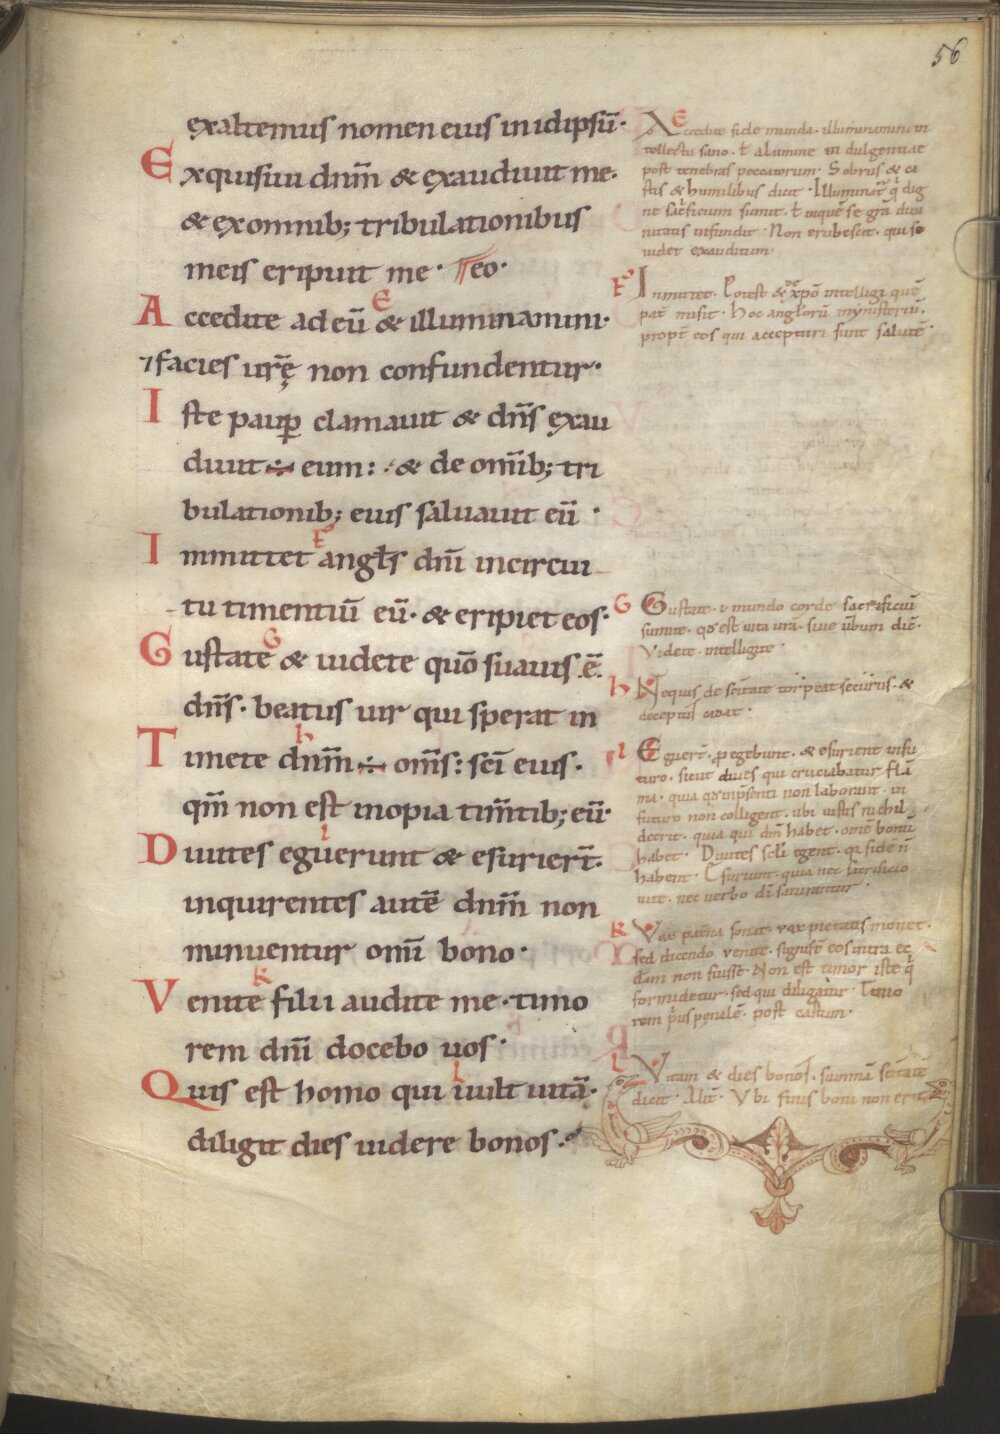 56
exaltemus nomen eius in idipsū·
Exquisiui dnm̄ & exaudiuit me·
& ex omnib; tribulationibus
meis eripuit me·
Accedite ad eū & illuminamini·
⁊ facies urę̄ non confundentur·
Iste paup̄ clamauit & dn̄s exau
diuit ÷ eum : · & de om̄ib; tri
bulationib; eius saluauit eū ·
Inmittet angl̄s dn̄i in circui
tu timentiū eū· & eripiet eos·
Gustate & uidete quō suauis ē·
dn̄s· beatus uir qui sperat in
Timete dn̄m ÷ om̄s : sc̄i eius·
qm̄ non est inopia tim̄tib; eū·
Diuites eguerunt & esurier̄t·
inquirentes autē dn̄m non
minuentur om̄i bono·
Venite filii audite me· timo
rem dn̄i docebo uos·
Quis est homo qui uult uitā·
diligit dies uidere bonos·
E Accedite fide munda· illuminamini in
tellectu sano· ł a lumine indulgentiae
post tenebras peccatorum· Sobriis & ca
stis & humilibus dicit· Illuminat̄ q̄ dig
ne sac̄ficium sumit· ł in quē se gr̄a diui
nitatis infundit· Non erubescit· qui se
uidet exauditum·
F Inmittet· Potest & de xp̄o intelligi quē
pat̄ misit· hoc angl̄orū mynisteriū·
propt̄ eos qui accepturi sunt salutē·
G Gustate· i mundo corde sacrificiū
sumite· qd̄ est uita ur̄a· siue uerbum dic̄·
Videte· intelligite·
h Nequis de sc̄itate torpeat securus· &
deceptus cadat·
I Eguer̄t· p̄ egebunt· & esurient in fu
turo· sicut diues qui cruciabatur flā
ma· quia qd̄ in p̄senti non laborant· in
futuro non colligent· ubi iustis nichil
deerit· quia qui dn̄m habet· om̄e bonū
habet· Diuites sc̄li egent· q̄ fidē n̄
habent· Esuriunt· quia nec sacrificio
uite· nec uerbo dī saturantur·
K Vox patn̄a sonat· uox pietatis monet·
sed dicendo uenite· signat eos intra ec
cl̄am non fuisse· Non est timor iste q̄
formidetur· sed qui diligatur· Timo
rem p̄us penalē· post castum·
L Vitam & dies bonos· summā sc̄itatē
dicit· Alit̄· Vbi finis boni non erit·